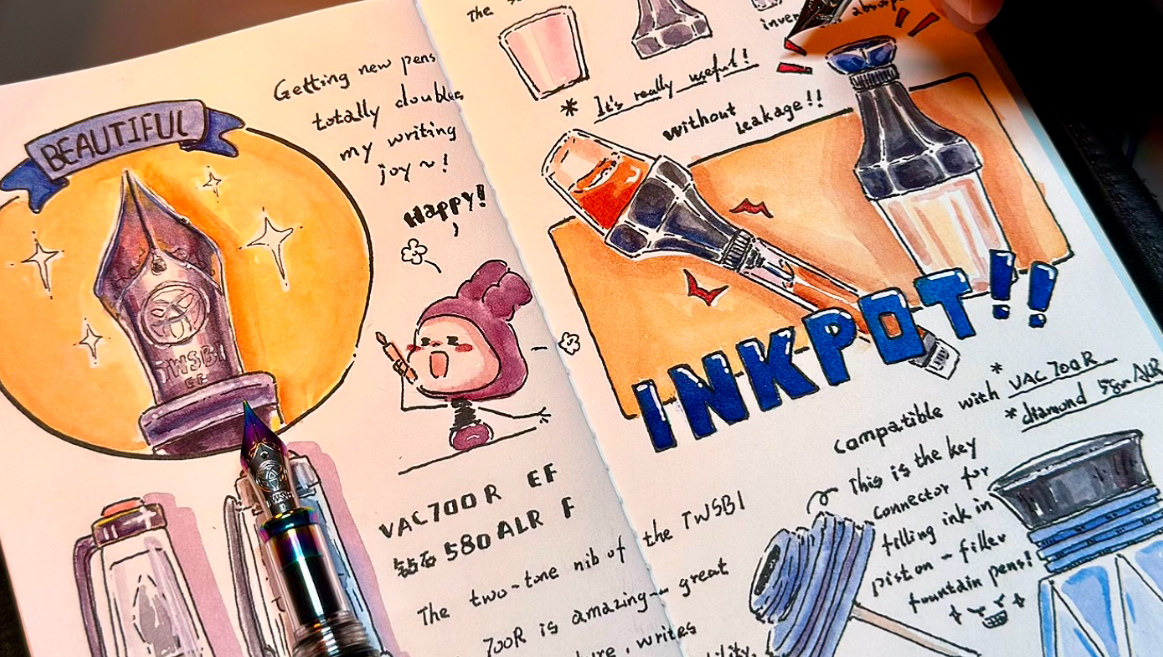 BEAUTIFUL
TWSBI
EF
Getting new pens
totally doubles
my writing
joy~!
Happy!
VAC700R EF
钻石 580ALR F
The two-tone nib of the TWSBI
700R is amazing~ great
writes
The
* It's really useful!
without leakage!!
INKPOT!!
Compatible with * VAC700R
* diamond 580ALR
This is the key
connector for
filling ink in
piston-filler
fountain pens!